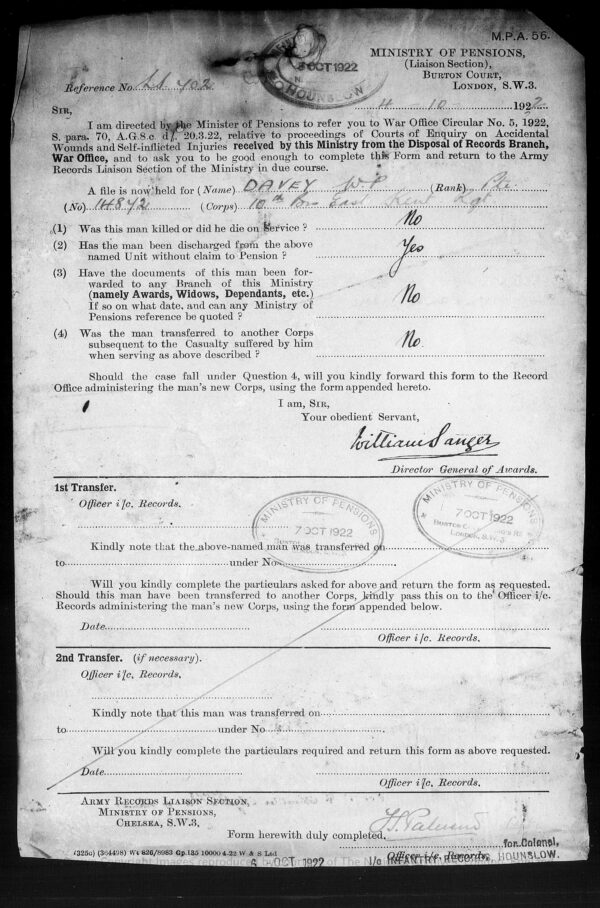 M.P.A. 56.
5 OCT 1922
HOUNSLOW
MINISTRY OF PENSIONS,
(Liaison Section),
BURTON COURT,
LONDON, S.W.3.
Reference No. 402
4 10 1922
SIR,
I am directed by the Minister of Pensions to refer you to War Office Circular No. 5, 1922,
S. para. 70, A.G.S.c d/. 20.3.22, relative to proceedings of Courts of Enquiry on Accidental
Wounds and Self-inflicted Injuries received by this Ministry from the Disposal of Records Branch,
War Office, and to ask you to be good enough to complete this Form and return to the Army
Records Liaison Section of the Ministry in due course.
A file is now held for (Name) DAVEY W P (Rank) Pte
(No) 14842 (Corps) 10th Bn East Kent Rgt
(1) Was this man killed or did he die on Service ? No
(2) Has the man been discharged from the above
named Unit without claim to Pension ? Yes
(3) Have the documents of this man been for-
warded to any Branch of this Ministry
(namely Awards, Widows, Dependants, etc.)
If so on what date, and can any Ministry of
Pensions reference be quoted ? No
(4) Was the man transferred to another Corps
subsequent to the Casualty suffered by him
when serving as above described ? No
Should the case fall under Question 4, will you kindly forward this form to the Record
Office administering the man's new Corps, using the form appended hereto.
I am, SIR,
Your obedient Servant,
William Sanger
Director General of Awards.
1st Transfer.
Officer i/c. Records.
MINISTRY OF PENSIONS
7 OCT 1922
MINISTRY OF PENSIONS
7 OCT 1922
LONDON, S.W.3
Kindly note that the above-named man was transferred on
to under No.
Will you kindly complete the particulars asked for above and return the form as requested.
Should this man have been transferred to another Corps, kindly pass this on to the Officer i/c.
Records administering the man's new Corps, using the form appended below.
Date
Officer i/c. Records.
2nd Transfer. (if necessary).
Officer i/c. Records.
Kindly note that this man was transferred on
to under No
Will you kindly complete the particulars required and return this form as above requested.
Date
Officer i/c. Records.
ARMY RECORDS LIAISON SECTION,
MINISTRY OF PENSIONS,
CHELSEA, S.W.3.
Form herewith duly completed.
for Colonel,
Officer i/c. Records,
i/c INFANTRY RECORDS, HOUNSLOW.
6 OCT 1922
(325c) (364498) Wt 826/8983 Gp.135 10000 4.22 W & S Ltd